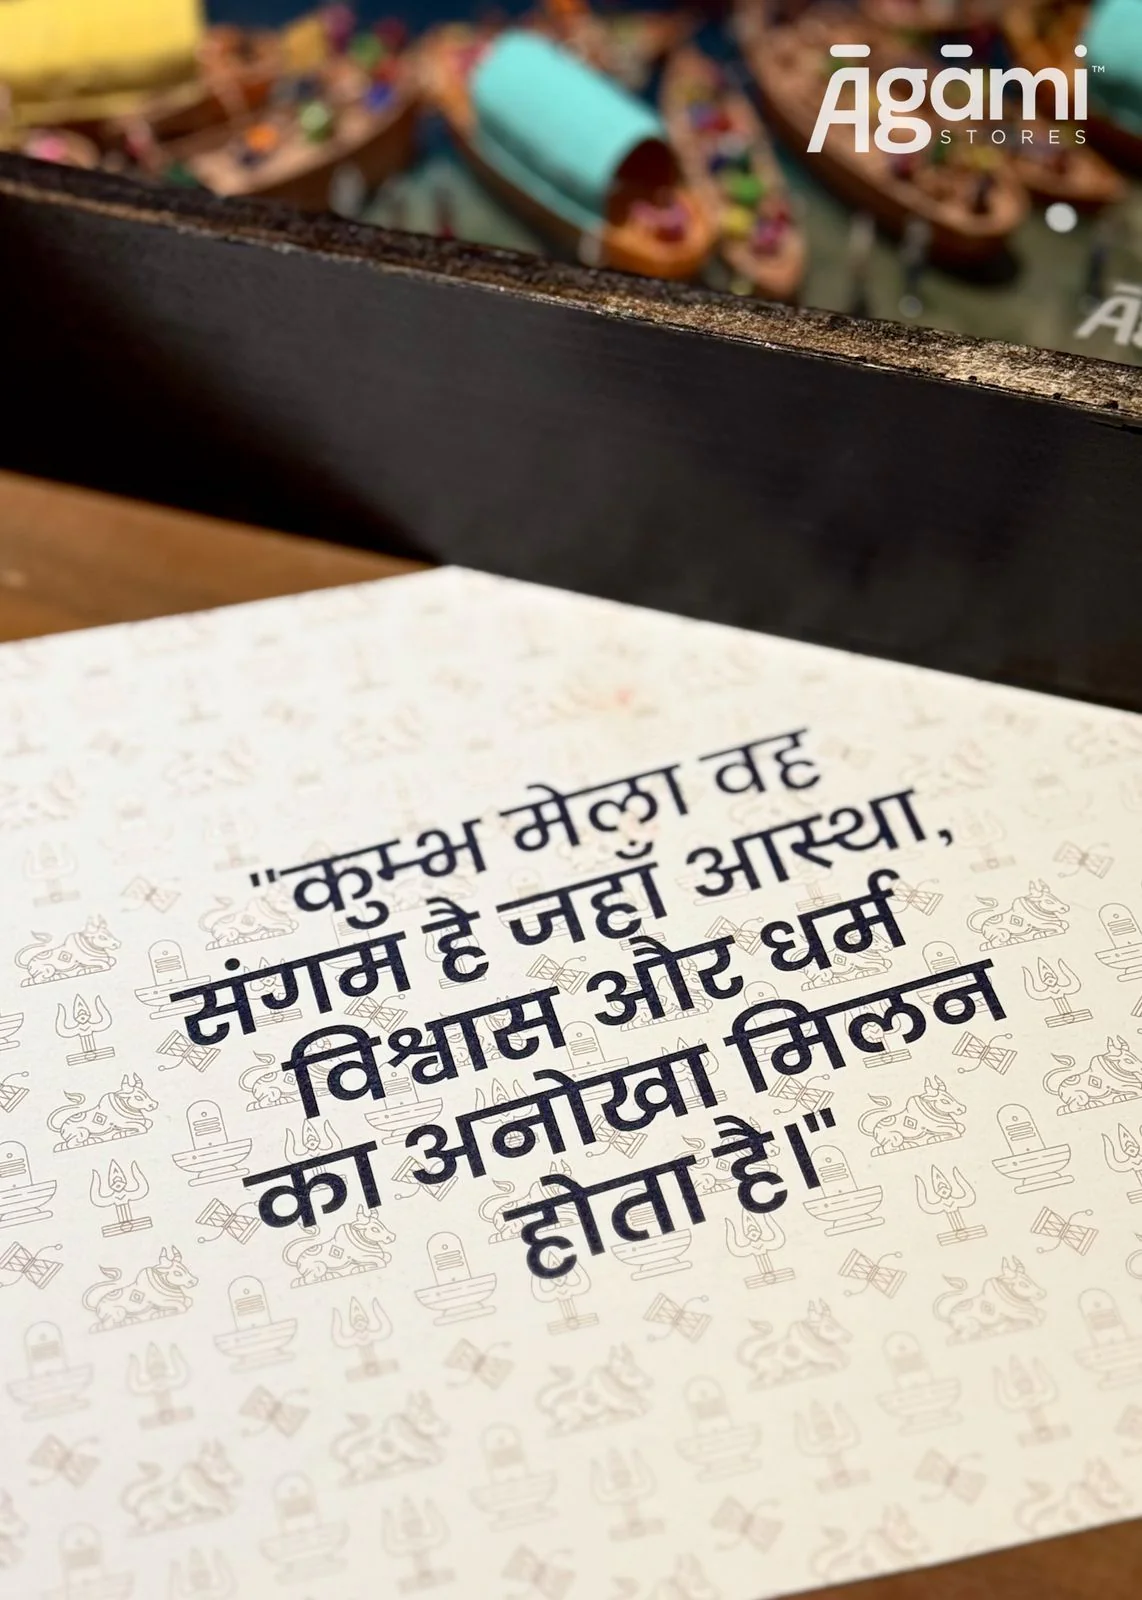 Āgāmi™
STORES
"कुम्भ मेला वह
संगम है जहाँ आस्था,
विश्वास और धर्म
का अनोखा मिलन
होता है।"